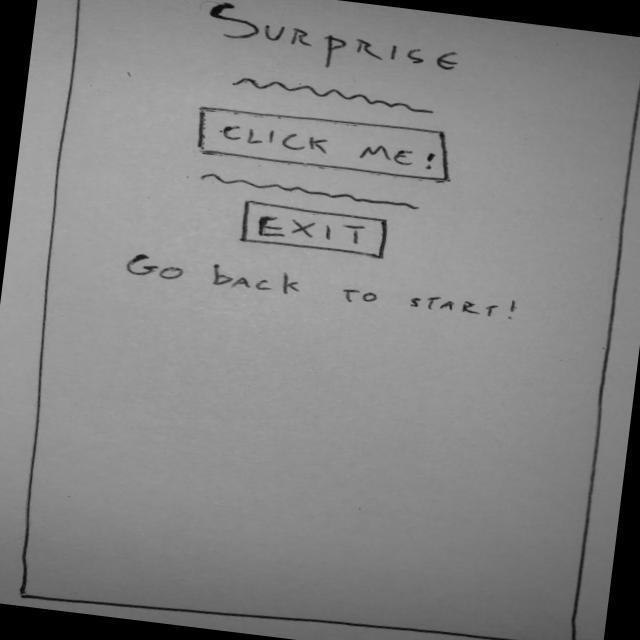 Surprise
CLICK ME!
EXIT
Go back to start!